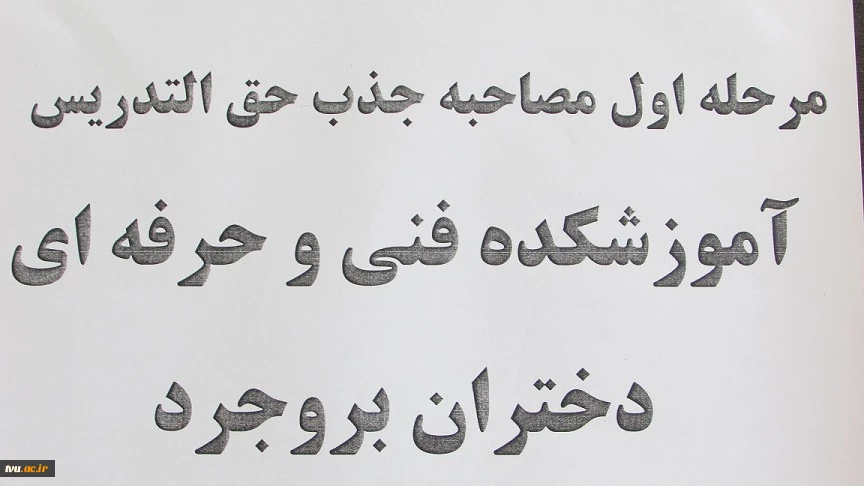 مرحله اول مصاحبه جذب حق التدریس
آموزشکده فنی و حرفه ای
دختران بروجرد
tvu.ac.ir